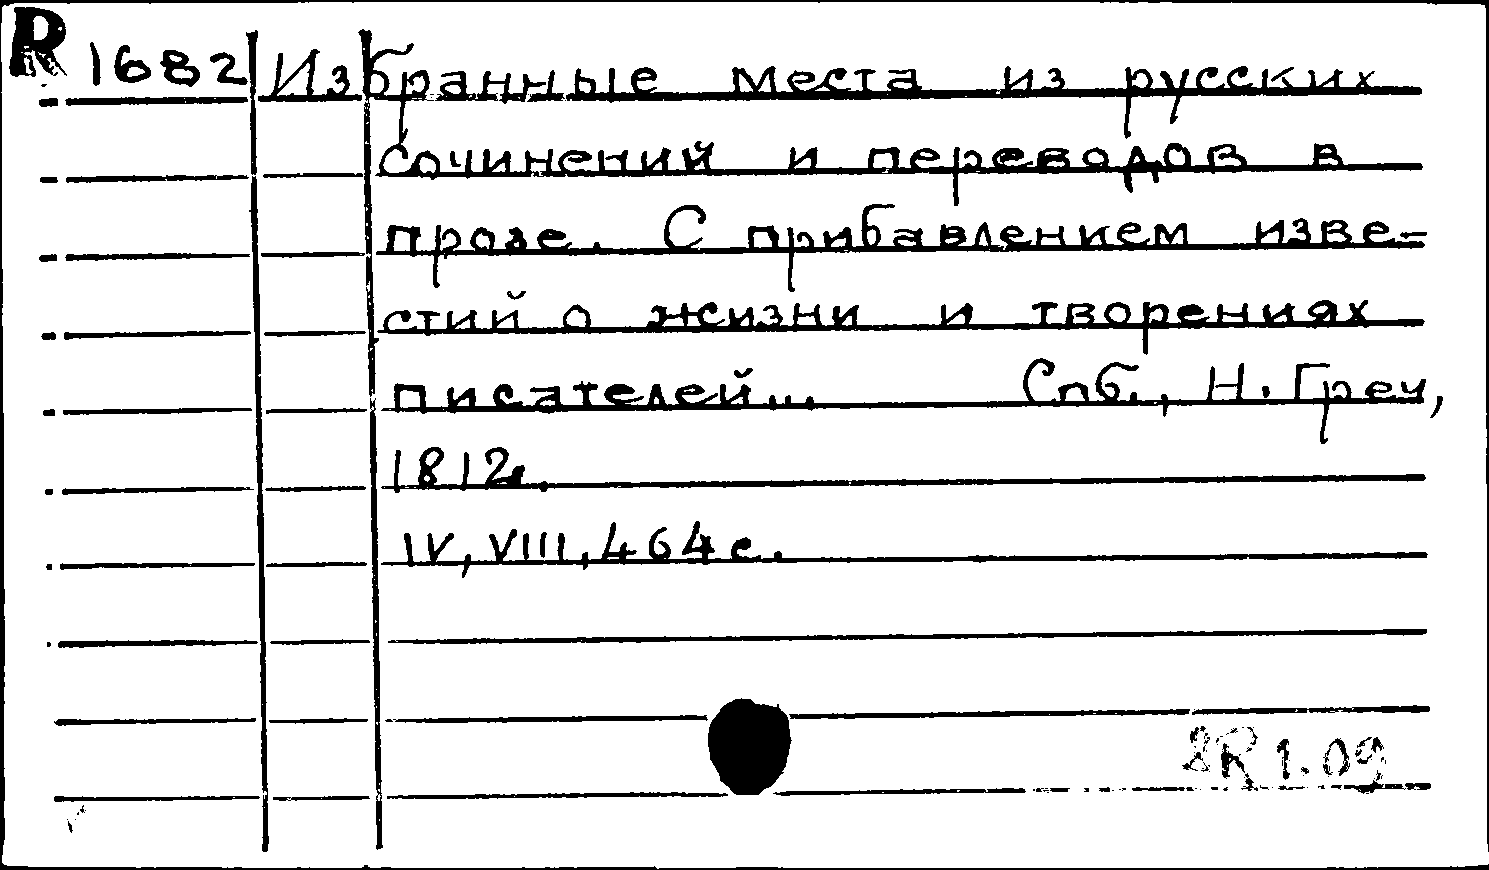 R 1682 Избранные места из русских
сочинений и переводов в
прозе. С прибавлением изве-
стий о жизни и творениях
писателей... Спб., Н. Греч,
1812.
IV, VIII, 464 с.
R 1.09